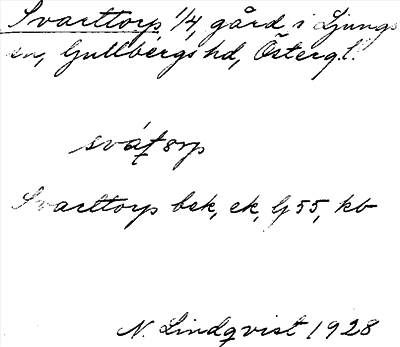 Svarttorp 1/4, gård i Ljungs
sn, Gullbergs hd, Österg.l.
Svarttorp bsk, ek, G 55, kb
N. Lindqvist 1928